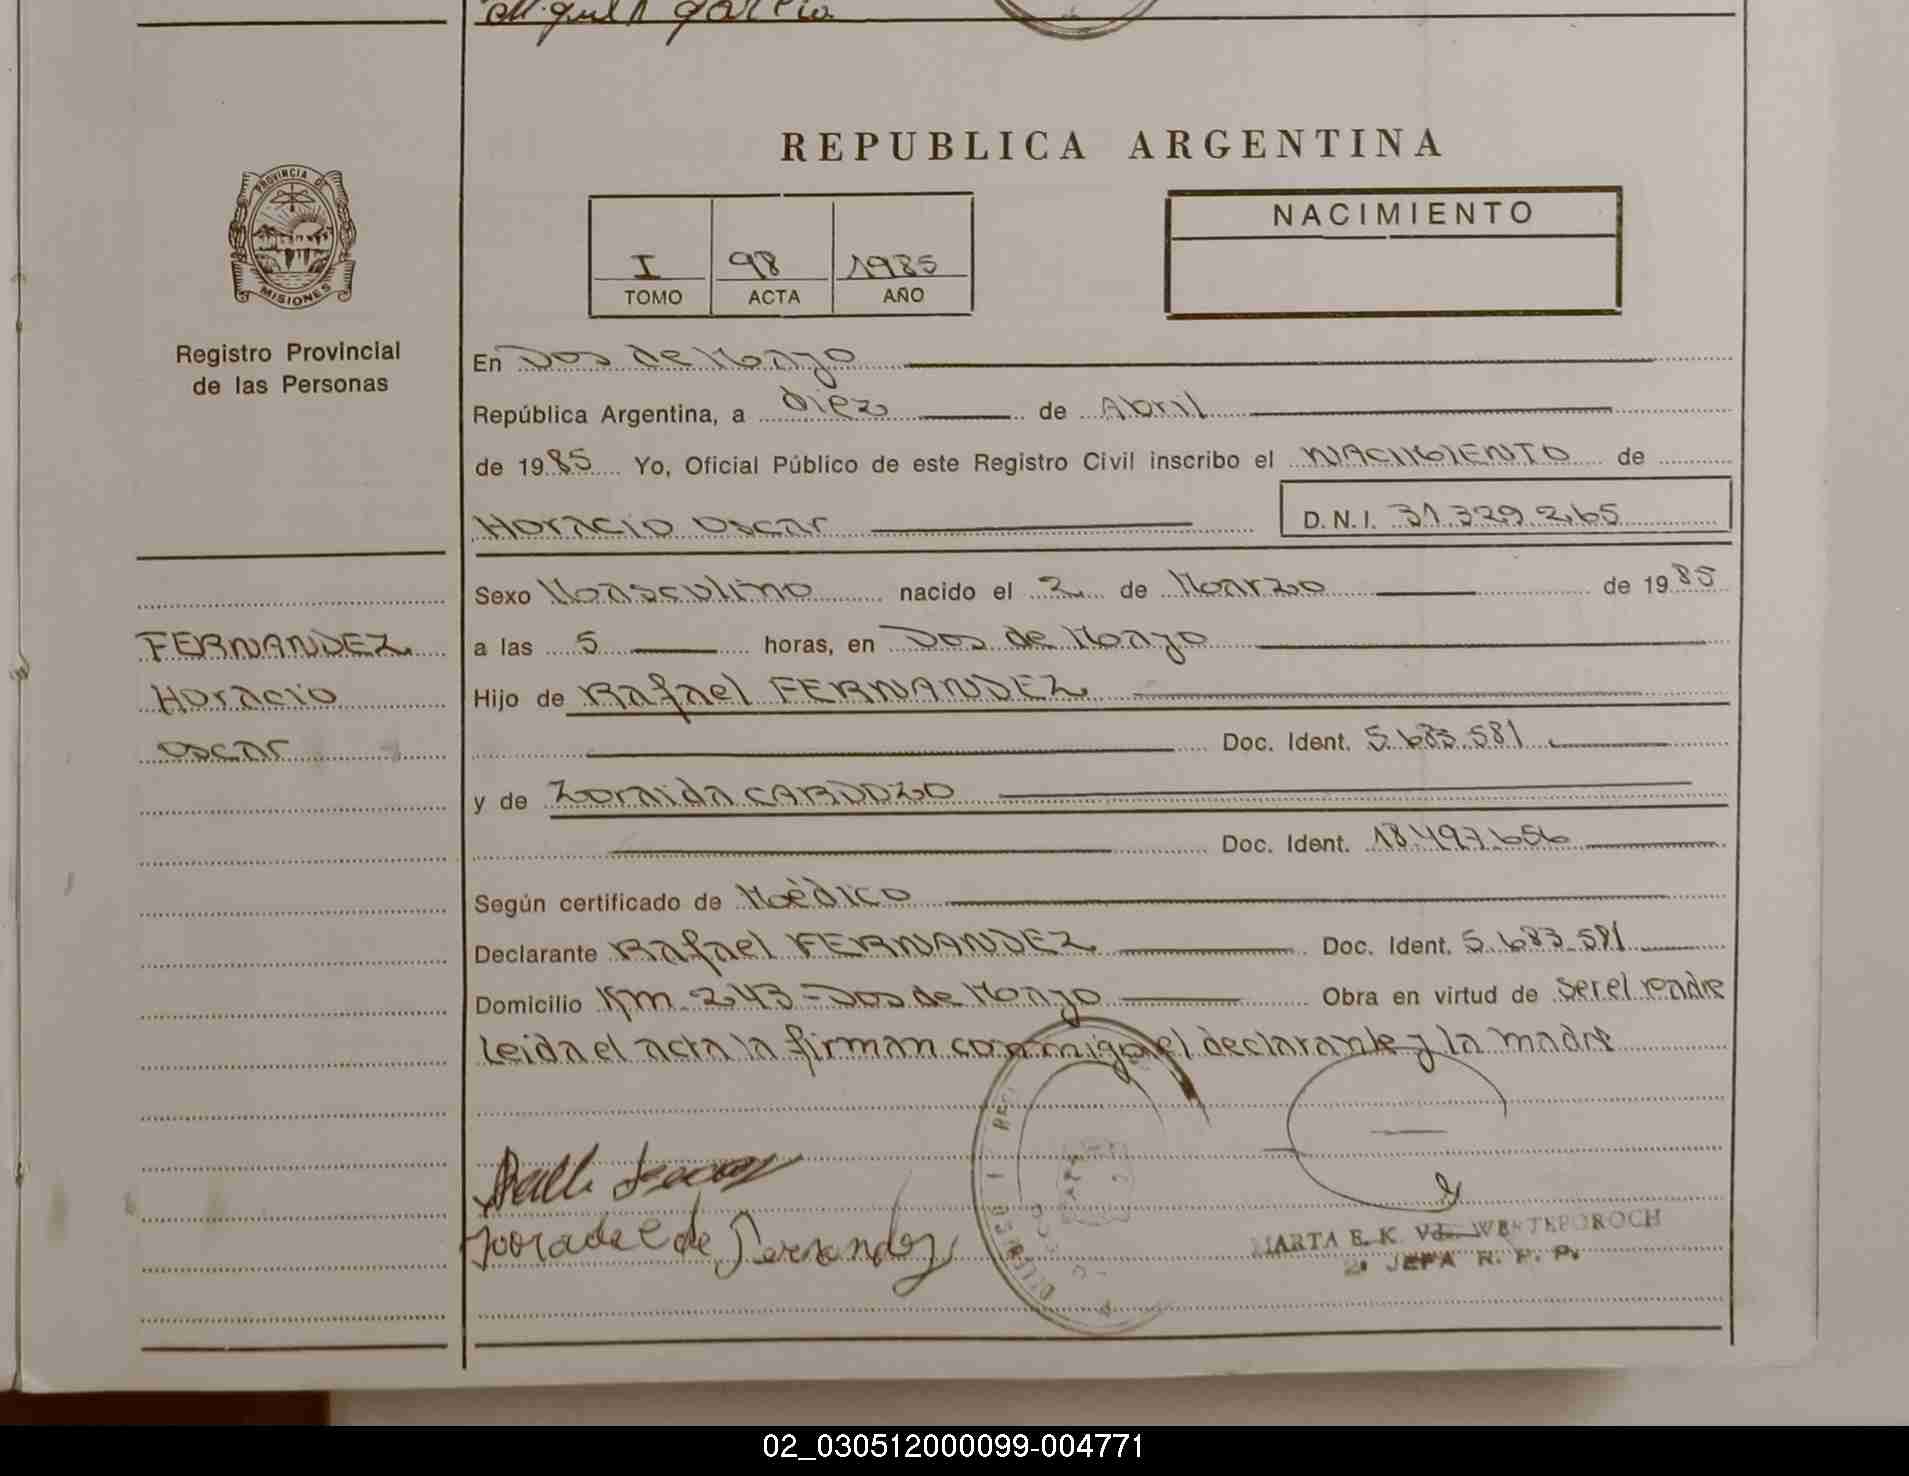 Miguel A Garcia
REPUBLICA ARGENTINA
PROVINCIA DE
MISIONES
Registro Provincial
de las Personas
I 98 1985
TOMO ACTA AÑO
NACIMIENTO
En Dos de Mayo
República Argentina, a diez de Abril
de 1985 Yo, Oficial Público de este Registro Civil inscribo el NACIMIENTO de
Horacio Oscar D.N.I. 31.329.265
FERNANDEZ
Horacio
Oscar
Sexo Masculino nacido el 2 de Marzo de 1985
a las 5 horas, en Dos de Mayo
Hijo de Rafael FERNANDEZ
Doc. Ident. 5.683.581
y de Zoraida CARDOZO
Doc. Ident. 18.497.656
Según certificado de Médico
Declarante Rafael FERNANDEZ Doc. Ident. 5.683.581
Domicilio Km 243 - Dos de Mayo Obra en virtud de ser el padre
Leida el acta la firman conmigo el declarante y la madre
de Fernandez
MARTA E. K. Vda. WESTEPOROCH
2ª JEFA R. P. P.
02_030512000099-004771